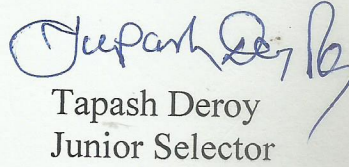 Tapash Dey Roy
Tapash Deroy
Junior Selector